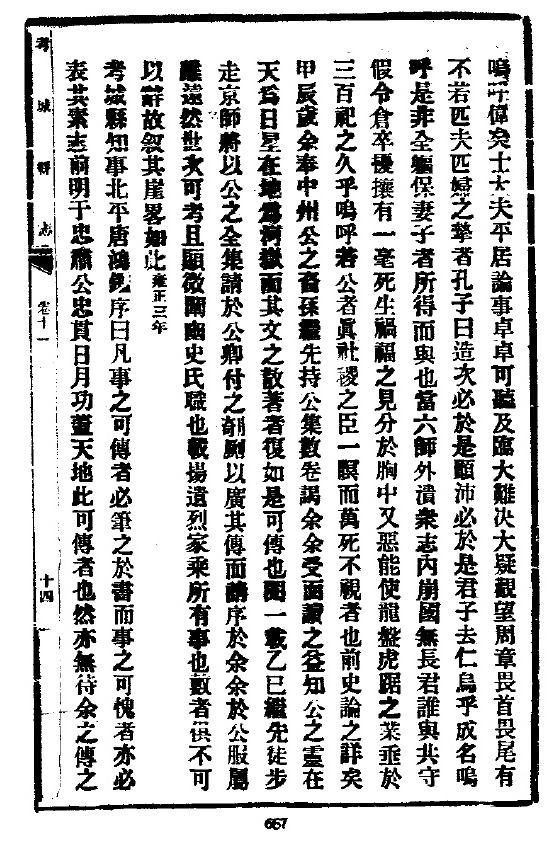 嗚呼偉矣士大夫平居論事卓卓可聽及臨大難決大疑觀望周章畏首畏尾有
不若匹夫匹婦之摯者孔子曰造次必於是顛沛必於是君子去仁烏乎成名嗚
呼是非全軀保妻子者所得而與也當六師外潰衆志內崩國無長君誰與共守
假令倉卒擾攘有一毫死生禍福之見分於胸中又惡能使龍盤虎踞之業垂於
三百祀之久乎嗚呼若公者眞社稷之臣一瞑而萬死不視者也前史論之詳矣
甲辰歲余奉中州公之裔孫繼先持公集數卷謁余余受而讀之益知公之靈在
天爲日星在地爲河嶽而其文之散著者復如是可傳也閱一載乙巳繼先徒步
走京師將以公之全集請於公卿付之剞劂以廣其傳而請序於余余於公服屬
雖遠然世次可考且顯微闡幽史氏職也載揚遺烈家乘所有事也數者俱不可
以辭故敘其崖畧如此雍正三年
考城縣知事北平唐鴻序曰凡事之可傳者必筆之於書而事之可愧者亦必
表其素志前明于忠肅公忠貫日月功蓋天地此可傳者也然亦無待余之傳之
考城縣志
卷十一
十四
667